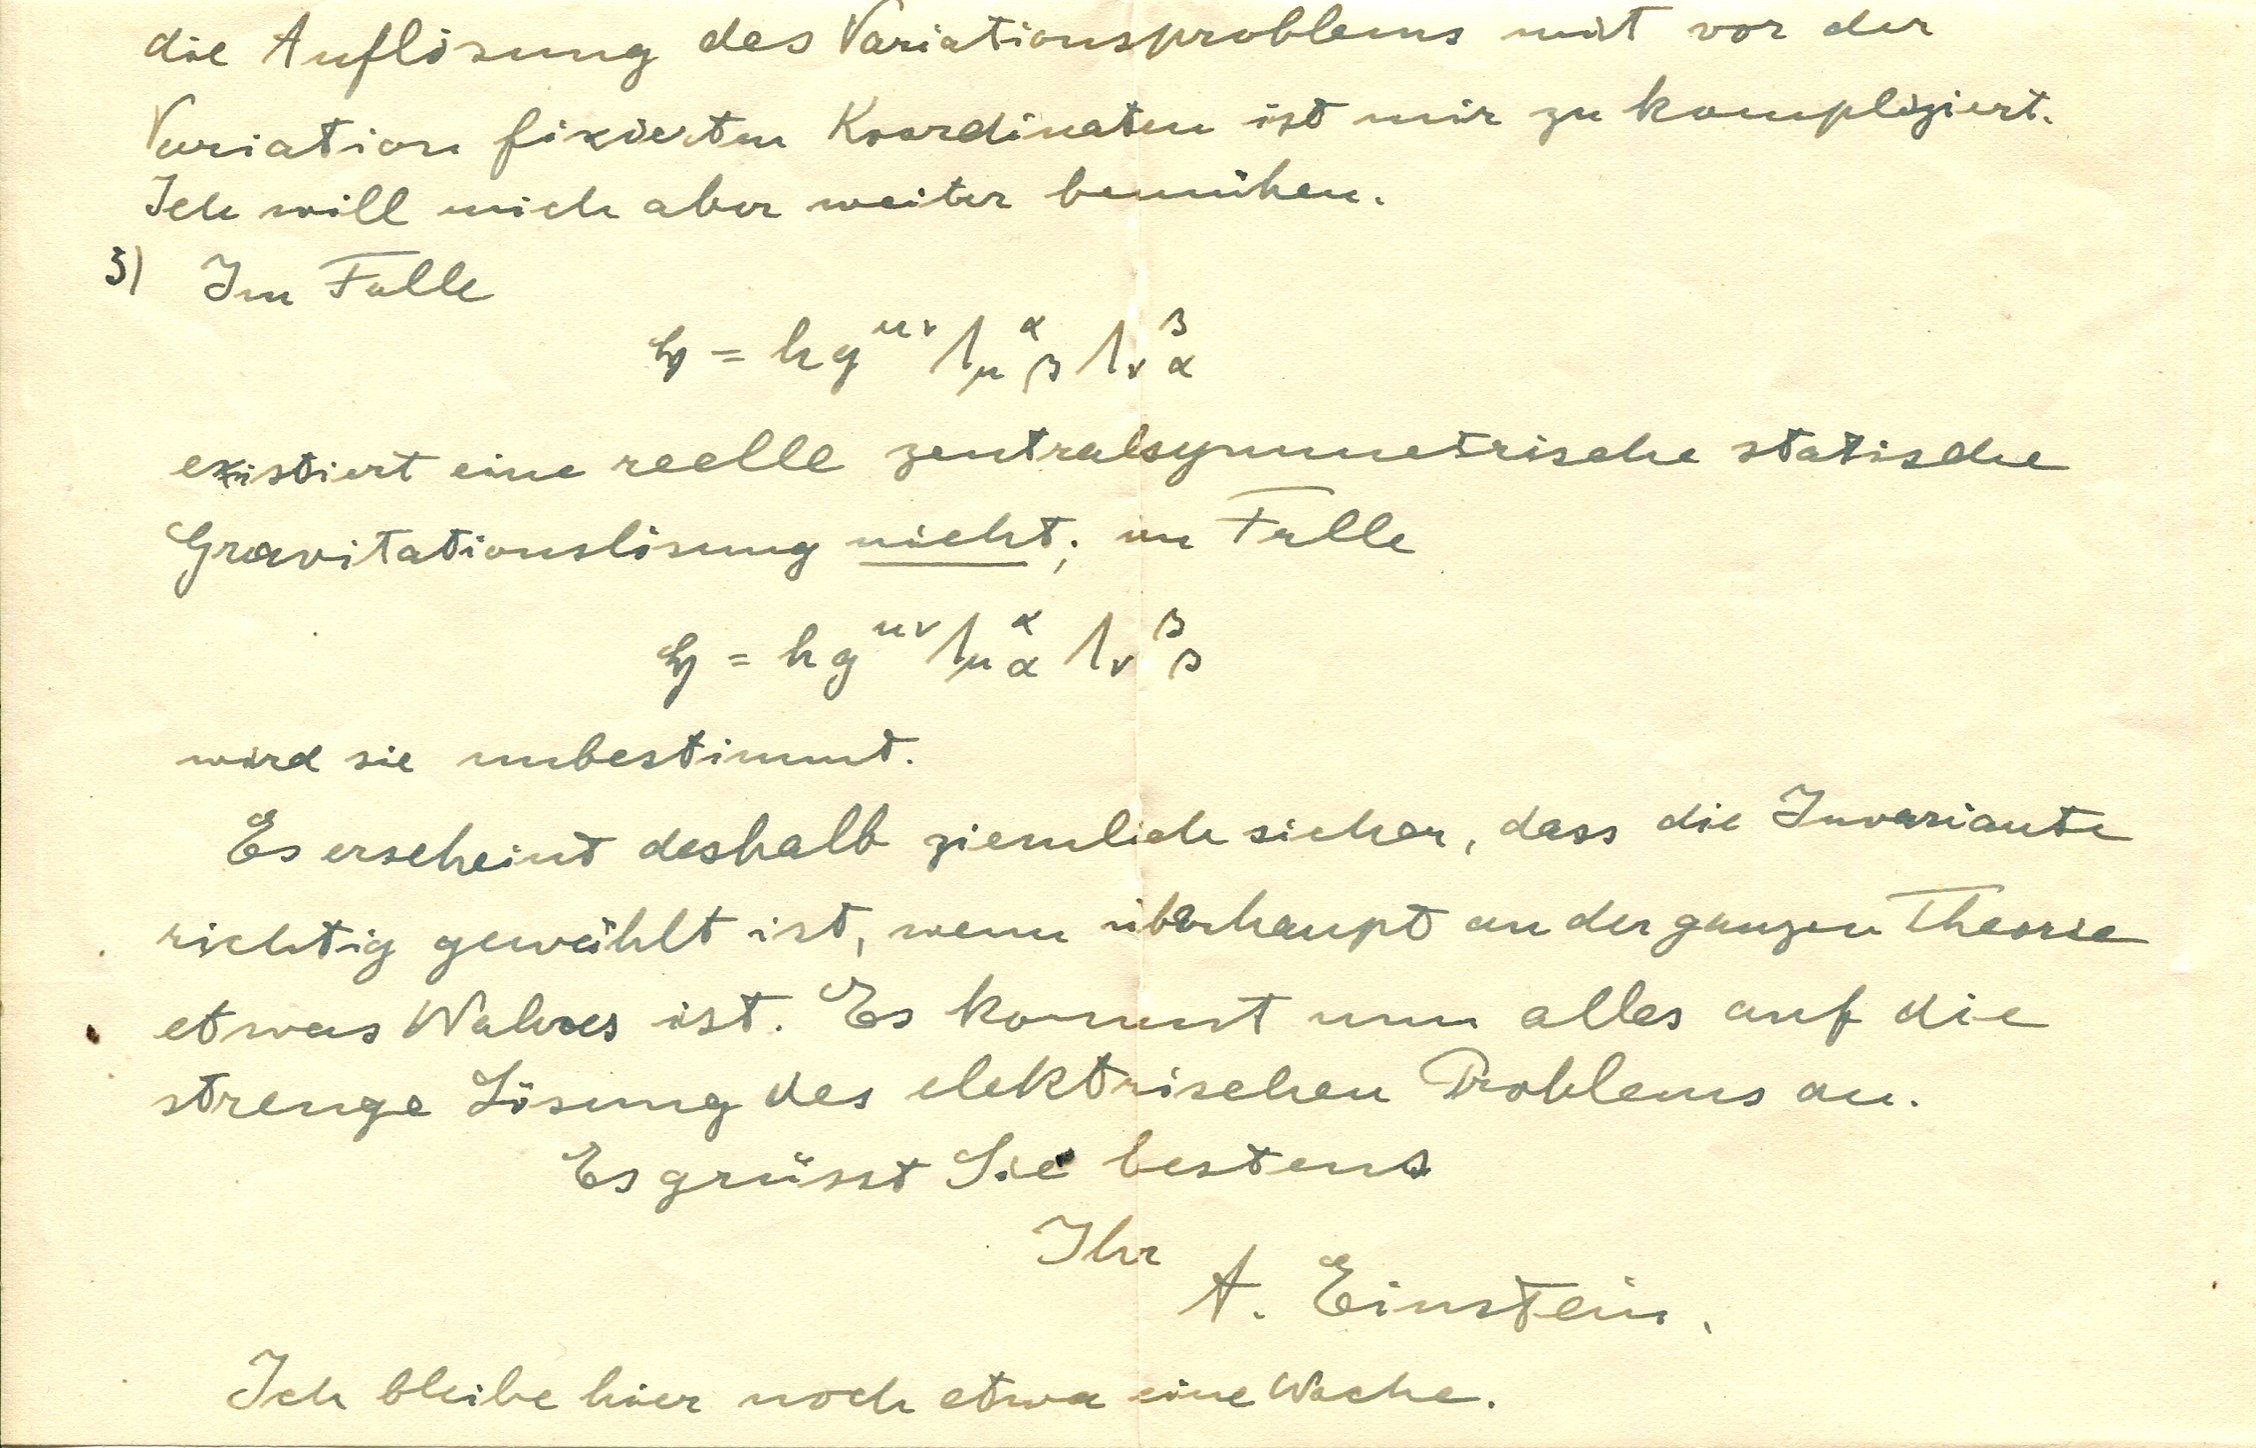 die Auflösung des Variationsproblems mit vor der
Variation fixierten Koordinaten ist mir zu kompliziert.
Ich will mich aber weiter bemühen.
3) Im Falle
𝔥 = h g^{μν} Λ_μ^α_β Λ_ν^β_α
existiert eine reelle zentralsymmetrische statische
Gravitationslösung nicht; im Falle
𝔥 = h g^{μν} Λ_μ^α_α Λ_ν^β_β
wird sie unbestimmt.
Es erscheint deshalb ziemlich sicher, dass die Invariante
richtig gewählt ist, wenn überhaupt an der ganzen Theorie
etwas Wahres ist. Es kommt nun alles auf die
strenge Lösung des elektrischen Problems an.
Es grüsst Sie bestens
Ihr
A. Einstein.
Ich bleibe hier noch etwa eine Woche.